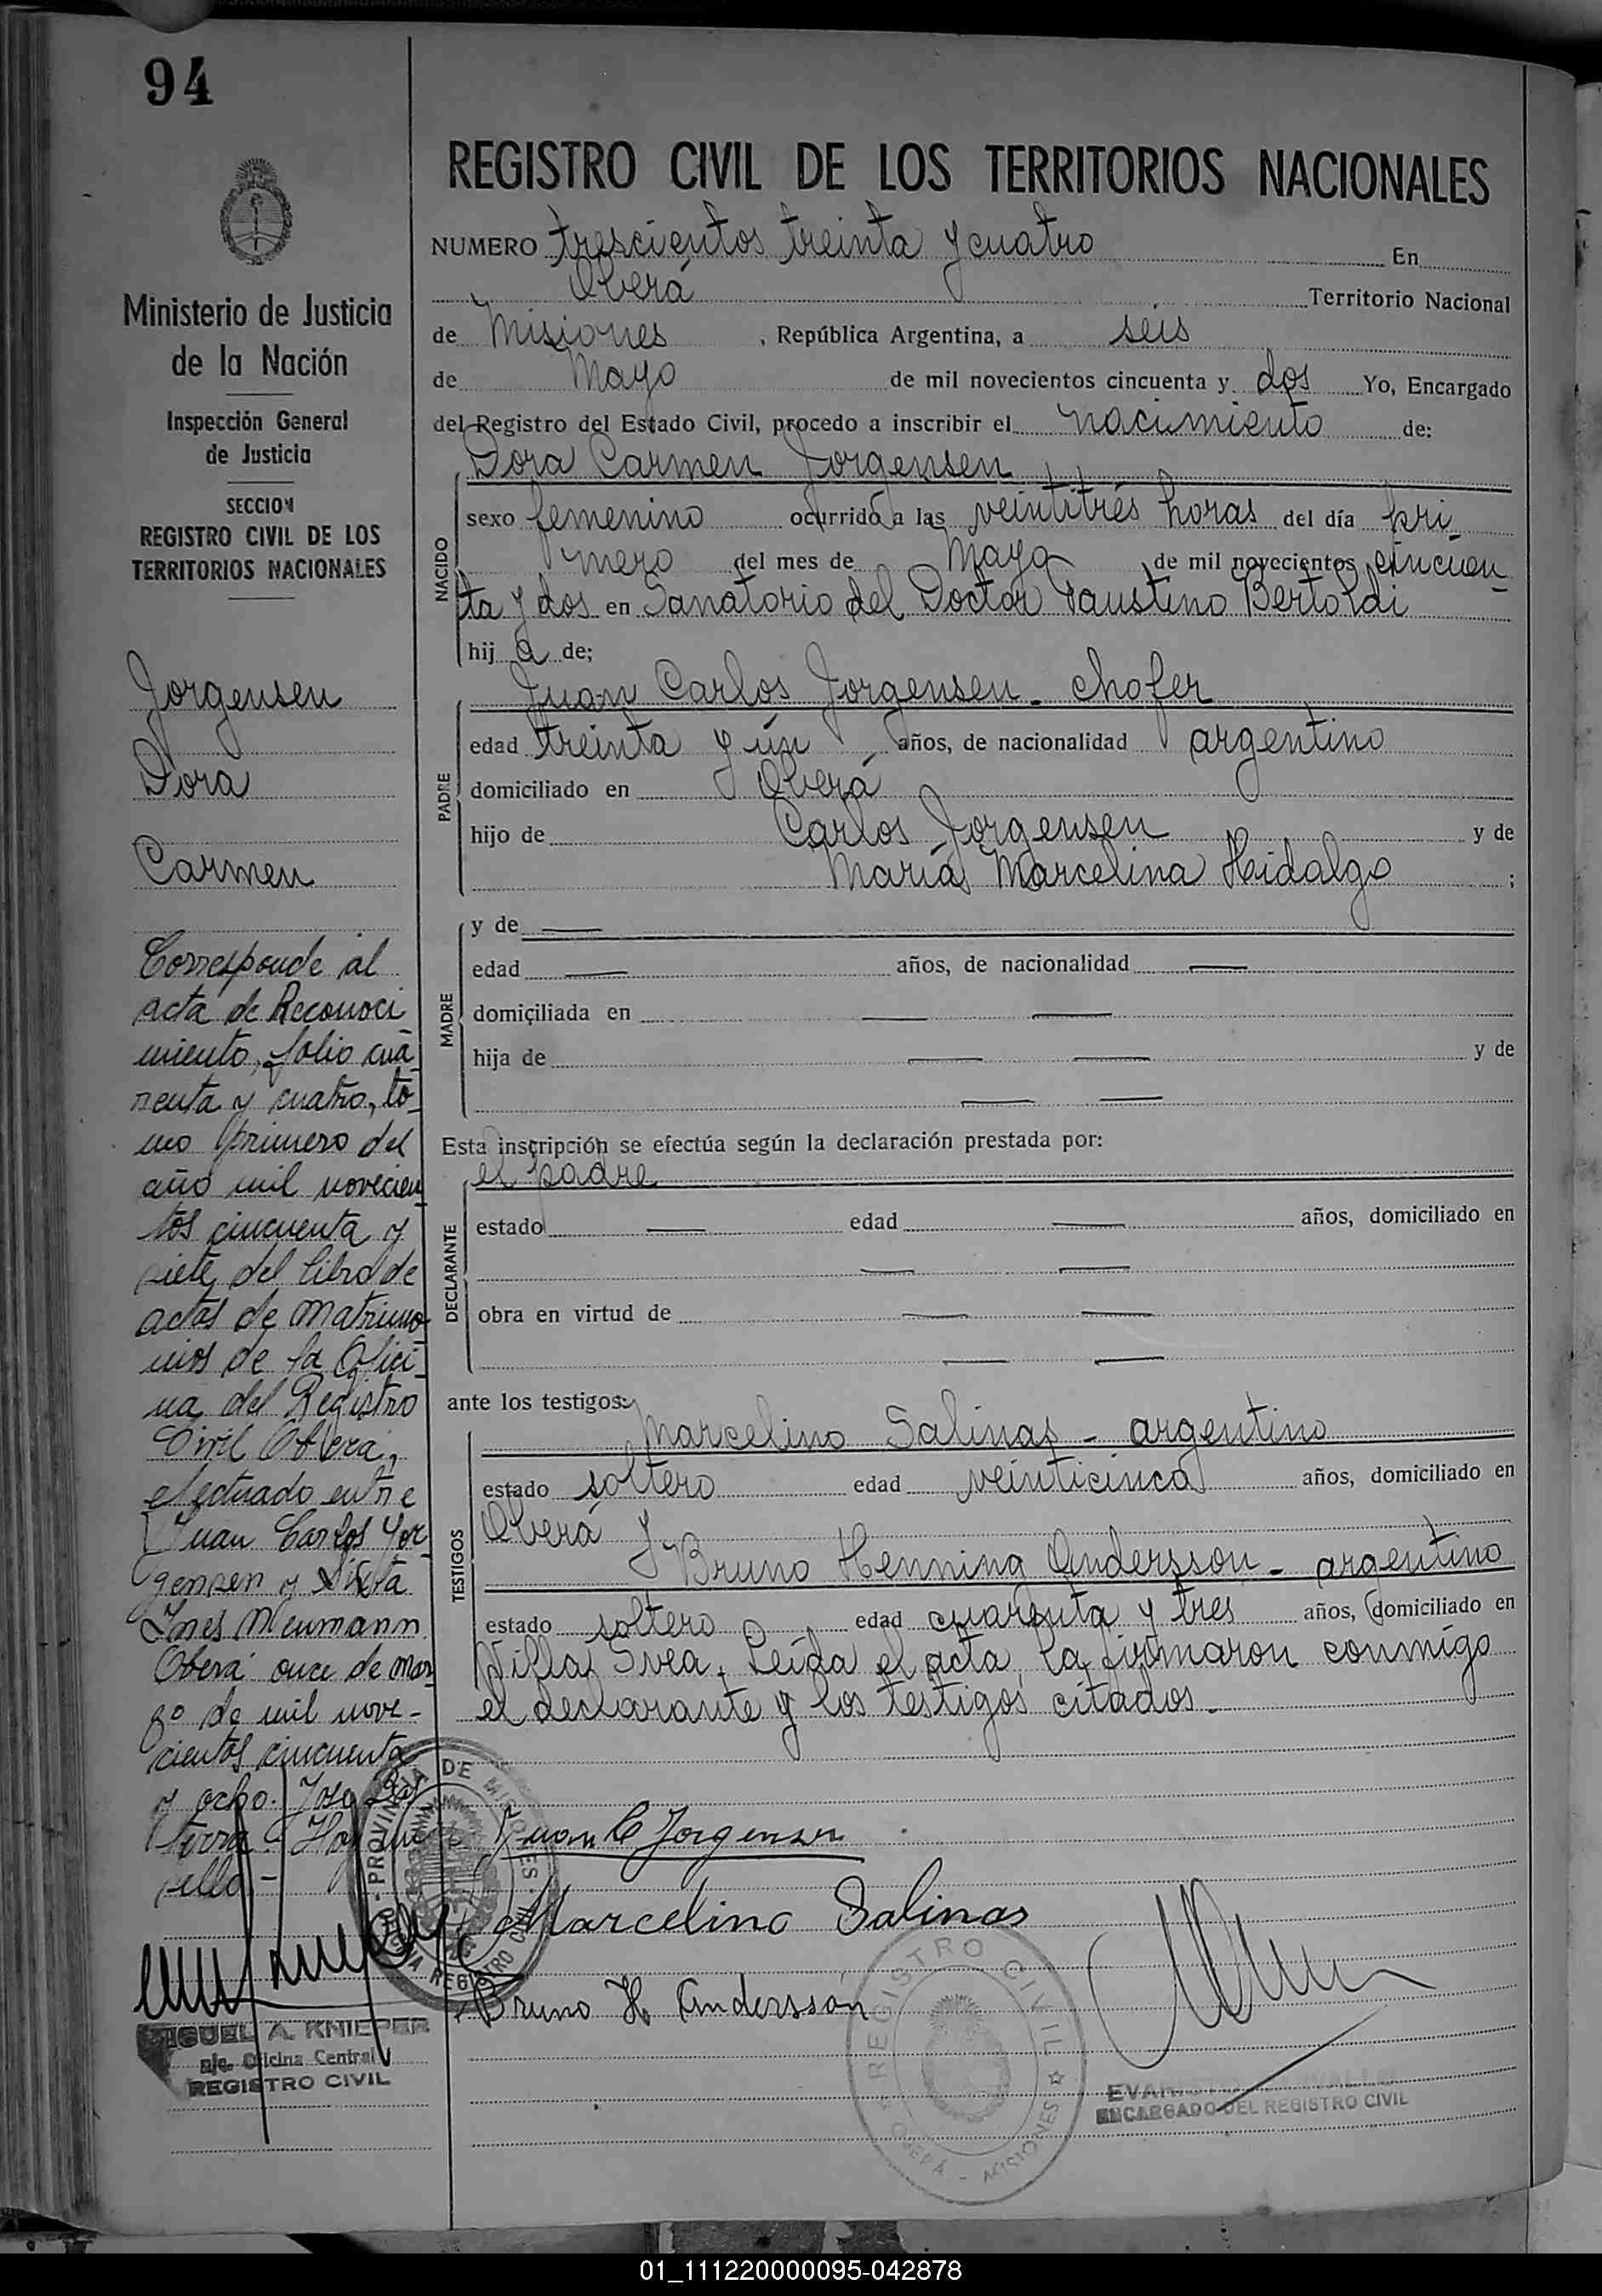 94
Ministerio de Justicia
de la Nación
Inspección General
de Justicia
SECCION
REGISTRO CIVIL DE LOS
TERRITORIOS NACIONALES
Jorgensen
Dora
Carmen
Corresponde al
acta de Reconoci
miento, folio cua
renta y cuatro, to
mo primero del
año mil novecien
tos cincuenta y
siete, del libro de
actas de Matrimo
nios de la Ofici
na del Registro
Civil Oberá,
efectuado entre
Juan Carlos Jor
gensen y Sixta
Ines Neumann
Oberá once de mar
zo de mil nove-
cientos cincuenta
y ocho.
MIGUEL A. KNIEPER
Oficina Central
REGISTRO CIVIL
REGISTRO CIVIL DE LOS TERRITORIOS NACIONALES
NUMERO trescientos treinta y cuatro En
Oberá Territorio Nacional
de Misiones, República Argentina, a seis
de Mayo de mil novecientos cincuenta y dos Yo, Encargado
del Registro del Estado Civil, procedo a inscribir el nacimiento de:
Dora Carmen Jorgensen
NACIDO
sexo femenino ocurrido a las veintitrés horas del día pri
mero del mes de Mayo de mil novecientos cincuen
ta y dos en Sanatorio del Doctor Faustino Bertoldi
hij a de;
PADRE
Juan Carlos Jorgensen - chofer
edad treinta y ún años, de nacionalidad argentino
domiciliado en Oberá
hijo de Carlos Jorgensen y de
María Marcelina Hidalgo ;
MADRE
y de —
edad — años, de nacionalidad —
domiciliada en — —
hija de — — y de
— —
Esta inscripción se efectúa según la declaración prestada por:
el padre
DECLARANTE
estado — edad — años, domiciliado en
— —
obra en virtud de — —
— —
ante los testigos:
TESTIGOS
Marcelino Salinas - argentino
estado soltero edad veinticinco años, domiciliado en
Oberá y
Bruno Henning Andersson - argentino
estado soltero edad cuarenta y tres años, domiciliado en
Villa Svea. Leída el acta, la firmaron conmigo
el declarante y los testigos citados.
Juan C Jorgensen
Marcelino Salinas
Bruno H. Andersson
PROVINCIA DE MISIONES
REGISTRO CIVIL
OBERÁ - MISIONES
ENCARGADO DEL REGISTRO CIVIL
01_111220000095-042878